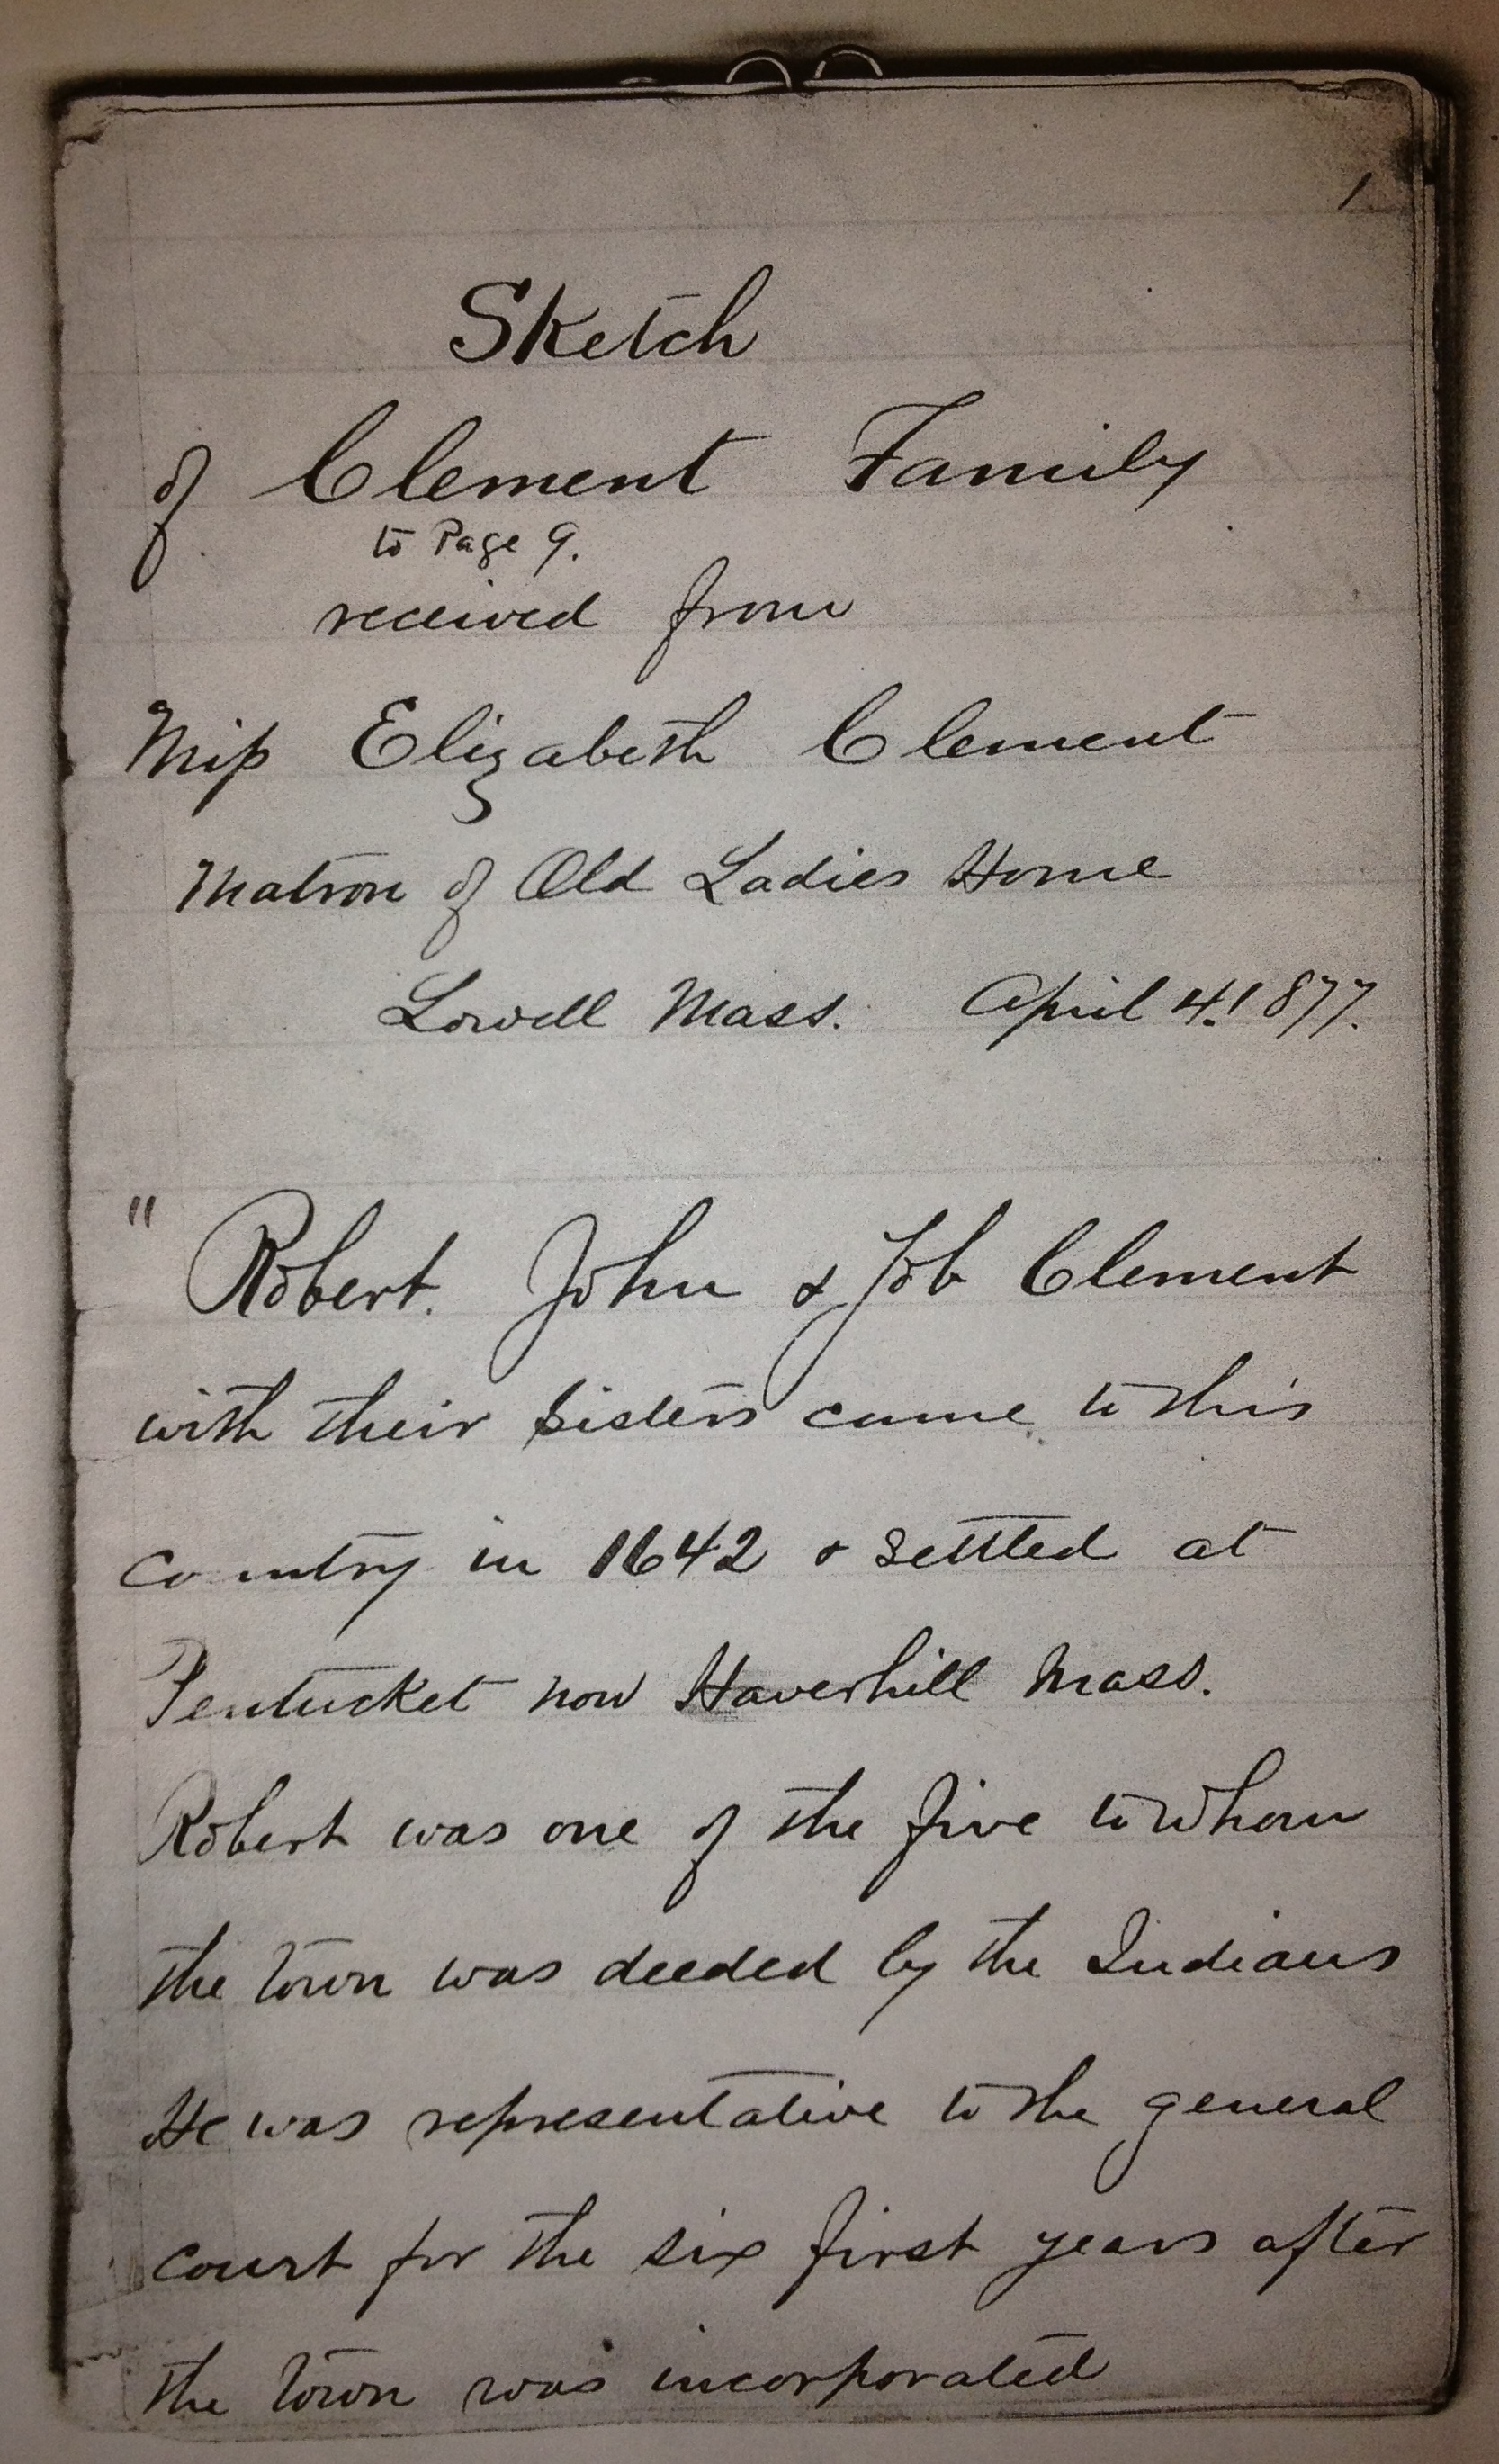 1
Sketch
of Clement Family
to Page 9.
received from
Miss Elizabeth Clement
Matron of Old Ladies Home
Lowell Mass. April 4. 1877.
" Robert. John & Job Clement
with their sisters came to this
country in 1642 & settled at
Pentucket now Haverhill Mass.
Robert was one of the five to whom
the town was deeded by the Indians
He was representative to the general
court for the six first years after
the town was incorporated